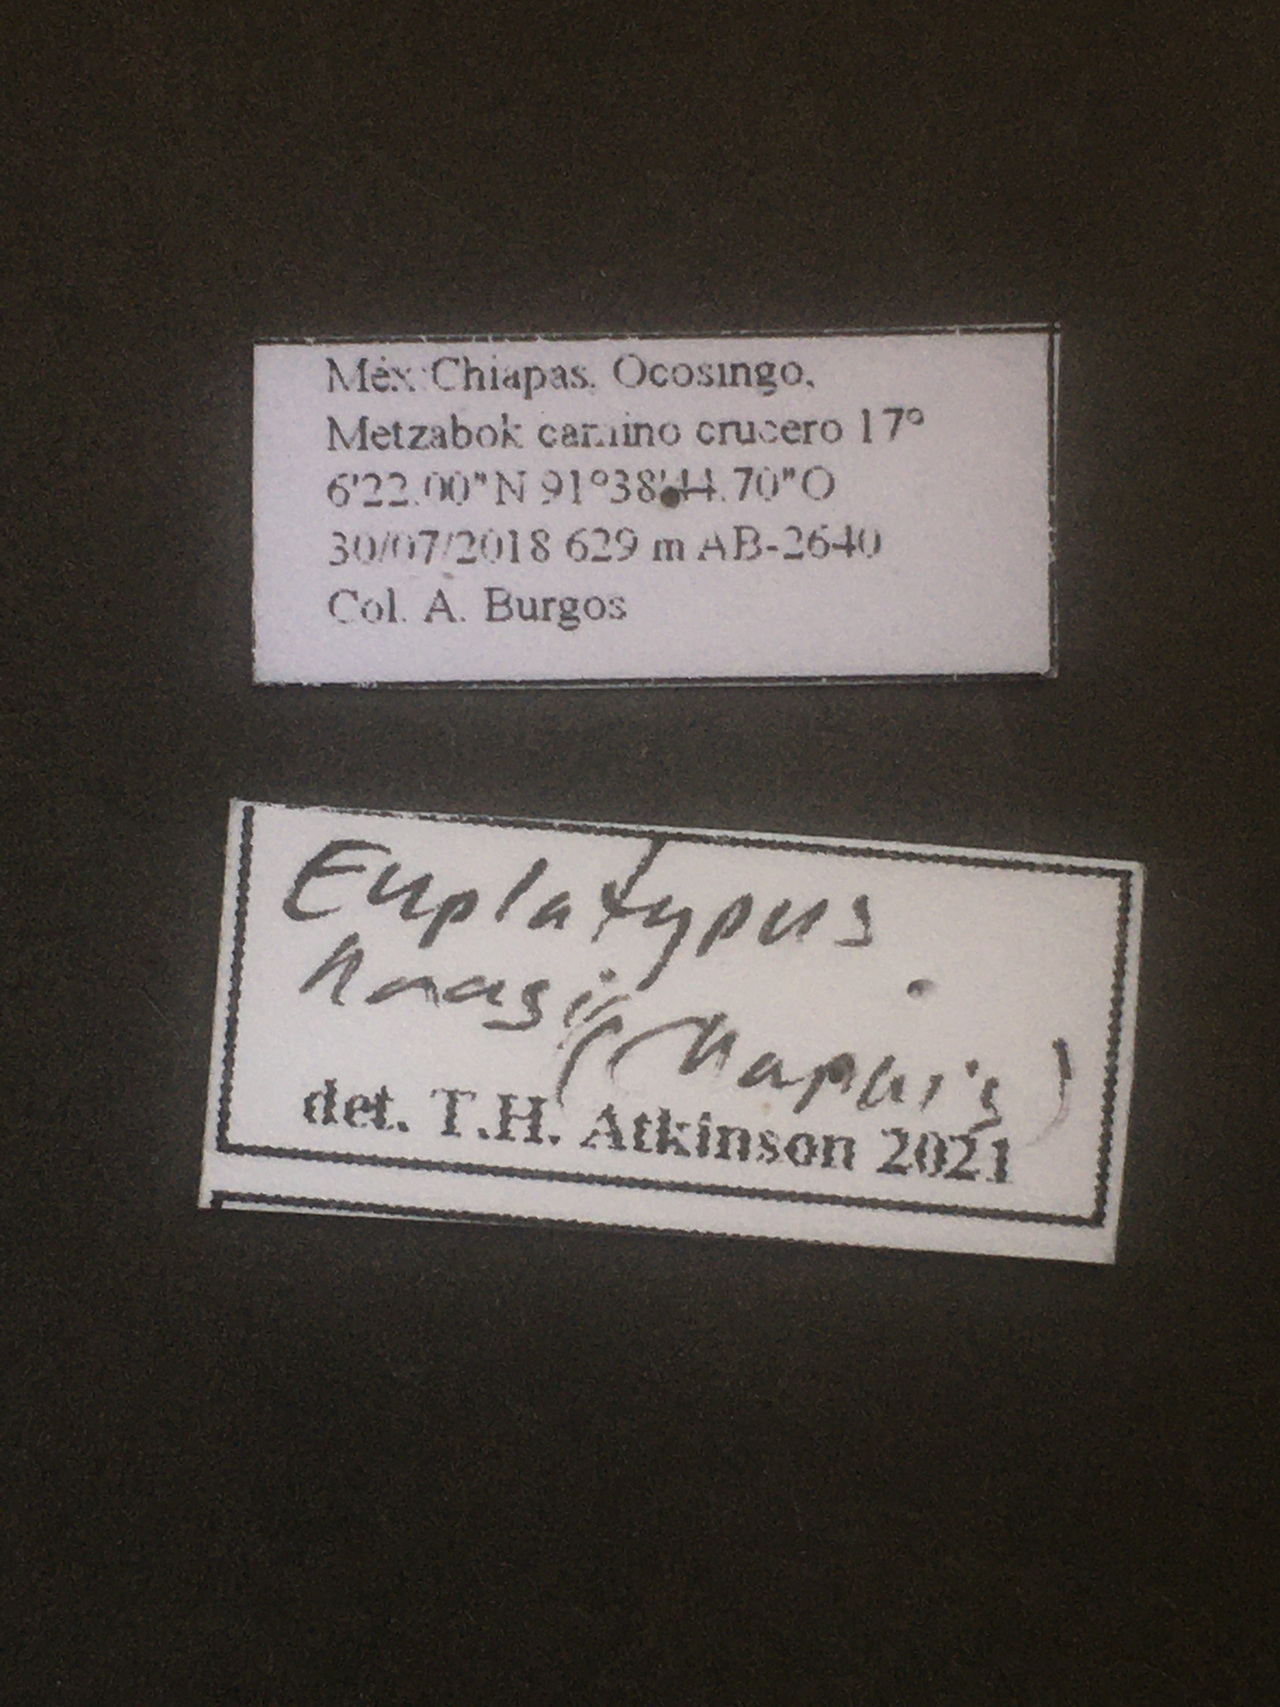 Méx:Chiapas. Ocosingo,
Metzabok camino crucero 17°
6'22.00"N 91°38'44.70"O
30/07/2018 629 m AB-2640
Col. A. Burgos
Euplatypus
haagi (Chapuis)
det. T.H. Atkinson 2021